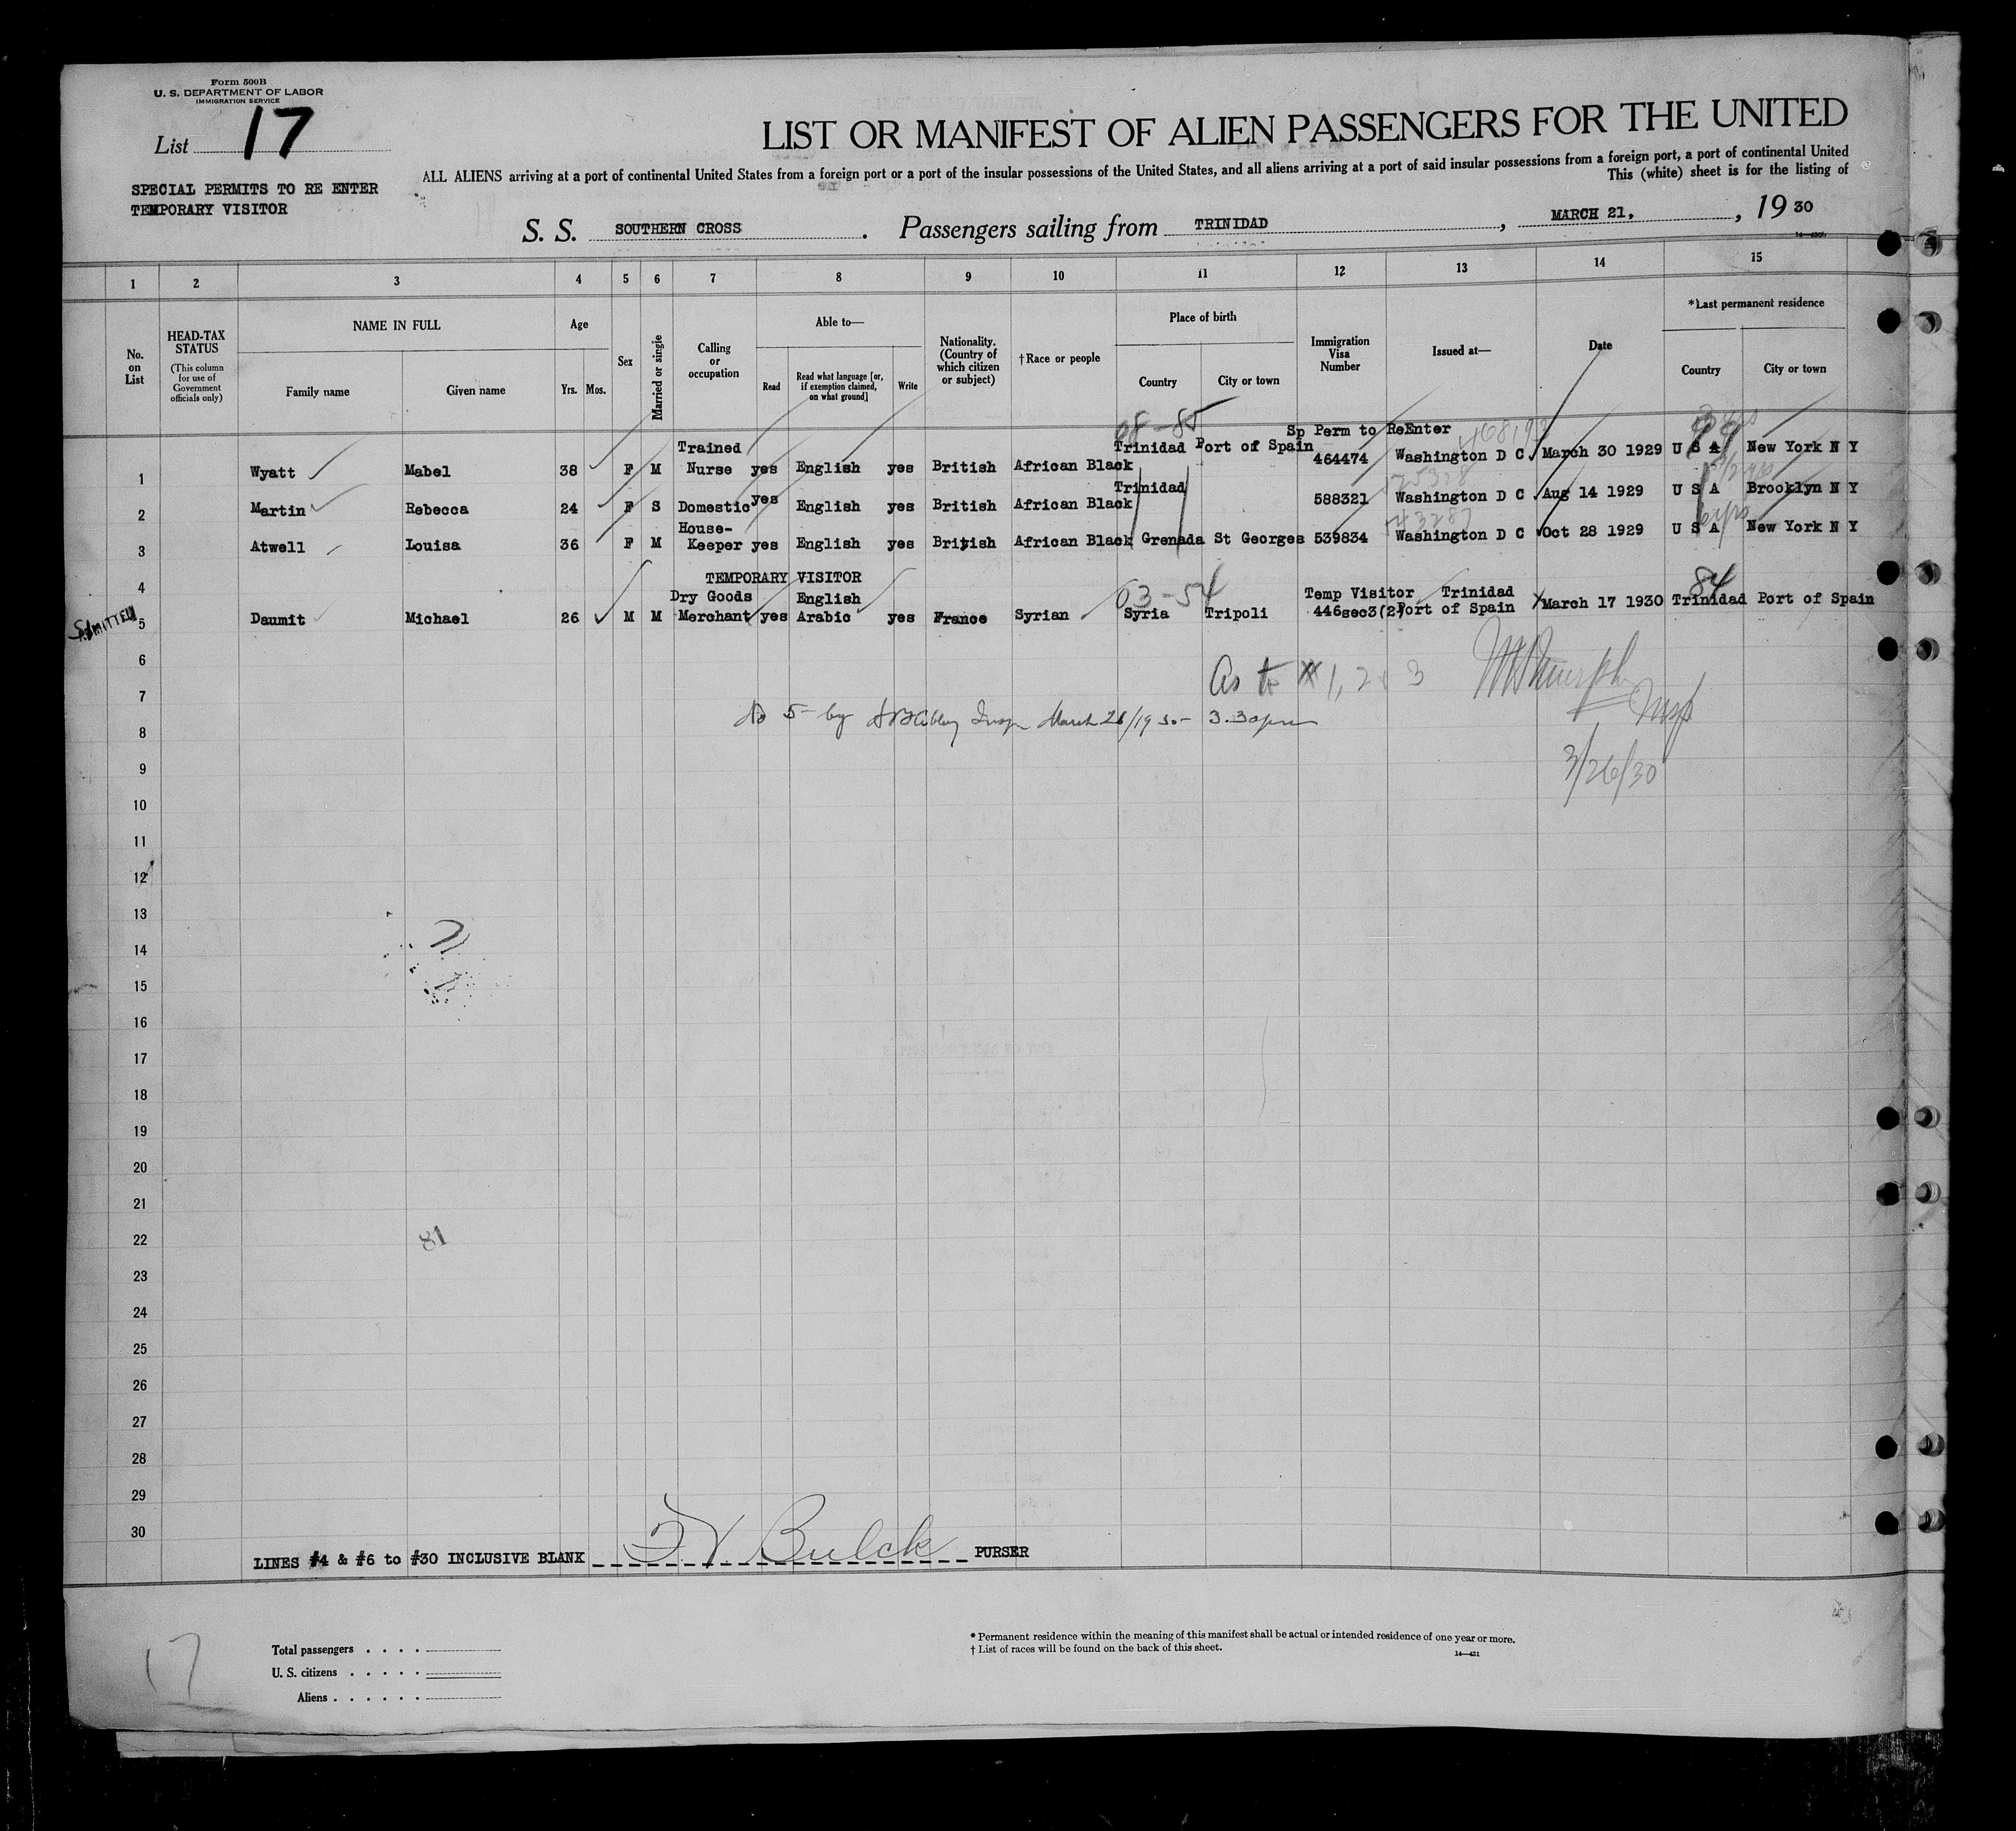 Form 500B
U. S. DEPARTMENT OF LABOR
IMMIGRATION SERVICE
List 17
LIST OR MANIFEST OF ALIEN PASSENGERS FOR THE UNITED
ALL ALIENS arriving at a port of continental United States from a foreign port or a port of the insular possessions of the United States, and all aliens arriving at a port of said insular possessions from a foreign port, a port of continental United
This (white) sheet is for the listing of
SPECIAL PERMITS TO RE ENTER
TEMPORARY VISITOR
S. S. SOUTHERN CROSS. Passengers sailing from TRINIDAD, MARCH 21, , 19 30
1 2 3 4 5 6 7 8 9 10 11 12 13 14 15
No. on List
HEAD-TAX STATUS (This column for use of Government officials only)
NAME IN FULL
Family name Given name
Age
Yrs. Mos.
Sex
Married or single
Calling or occupation
Able to—
Read Read what language [or, if exemption claimed, on what ground] Write
Nationality. (Country of which citizen or subject)
†Race or people
Place of birth
Country City or town
Immigration Visa Number
Issued at—
Date
*Last permanent residence
Country City or town
08-85
Sp Perm to ReEnter
1 Wyatt Mabel 38 F M Trained Nurse yes English yes British African Black Trinidad Port of Spain 464474 Washington D C March 30 1929 U S A New York N Y
2 Martin Rebecca 24 F S Domestic yes English yes British African Black Trinidad 588321 Washington D C Aug 14 1929 U S A Brooklyn N Y
3 Atwell Louisa 36 F M House-Keeper yes English yes British African Black Grenada St Georges 539834 Washington D C Oct 28 1929 U S A New York N Y
4 TEMPORARY VISITOR
03-54
84
ADMITTED
5 Daumit Michael 26 M M Dry Goods Merchant yes English Arabic yes France Syrian Syria Tripoli Temp Visitor 446sec3(2) Trinidad Port of Spain March 17 1930 Trinidad Port of Spain
6
As to # 1, 2 & 3
7
No 5 by Insp March 26/1930 - 3.30pm
8
3/26/30
9
10
11
12
13
14
15
16
17
18
19
20
21
22
81
23
24
25
26
27
28
29
30
LINES #4 & #6 to #30 INCLUSIVE BLANK Bulck PURSER
17
Total passengers . . . .
U. S. citizens . . . . .
Aliens . . . . . .
* Permanent residence within the meaning of this manifest shall be actual or intended residence of one year or more.
† List of races will be found on the back of this sheet.
14—431